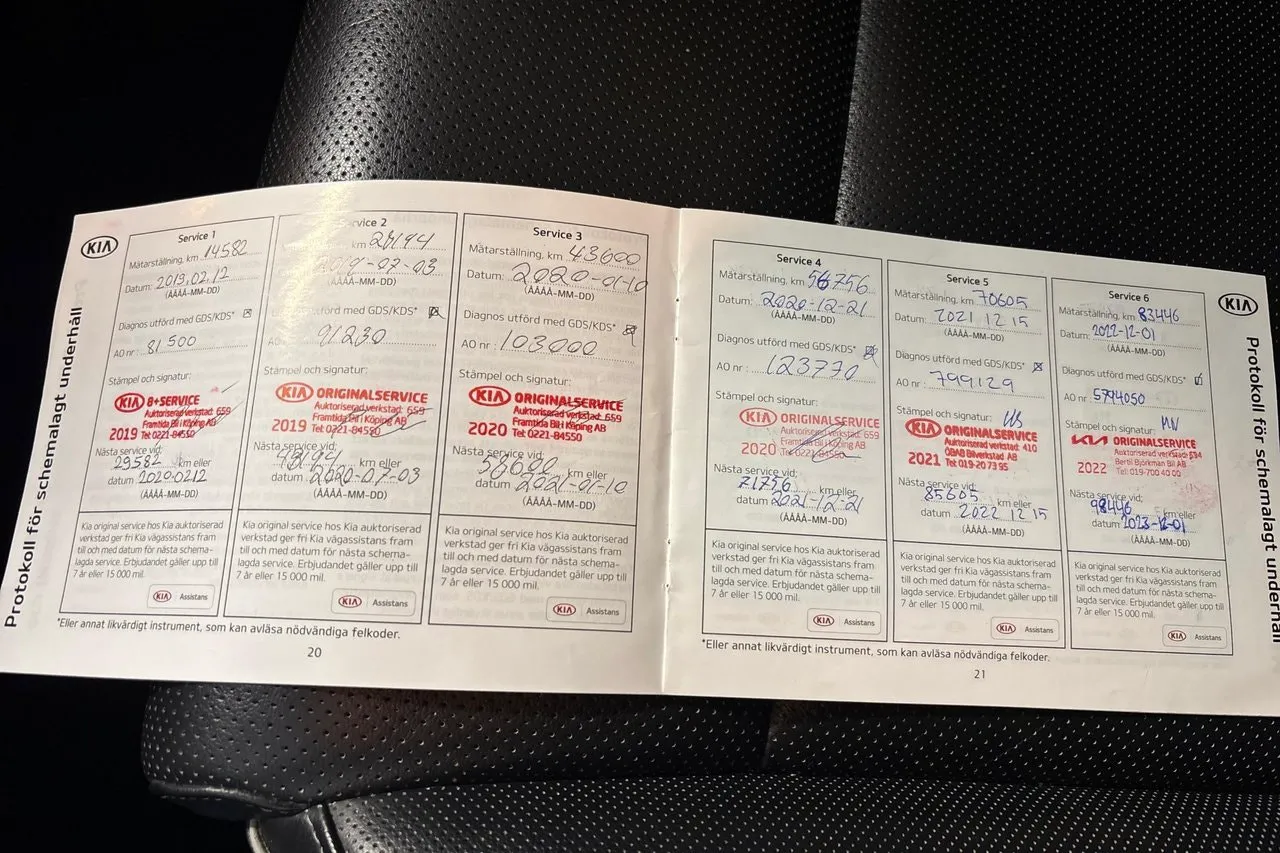 Protokoll för schemalagt underhåll
KIA
Service 1
Mätarställning, km 14582
Datum: 2019.02.12
(ÅÅÅÅ-MM-DD)
Diagnos utförd med GDS/KDS*
AO nr: 81500
Stämpel och signatur:
KIA 8+SERVICE
Auktoriserad verkstad: 659
Framtida Bil i Köping AB
2019 Tel: 0221-84550
Nästa service vid:
29582 km eller
datum 20200212
(ÅÅÅÅ-MM-DD)
Kia original service hos Kia auktoriserad
verkstad ger fri Kia vägassistans fram
till och med datum för nästa schema-
lagda service. Erbjudandet gäller upp till
7 år eller 15 000 mil.
KIA Assistans
Service 2
km
-03
(ÅÅÅÅ-MM-DD)
utförd med GDS/KDS*
91230
Stämpel och signatur:
KIA ORIGINALSERVICE
Auktoriserad verkstad: 659
Framtida Bil i Köping AB
2019 Tel: 0221-84550
Nästa service vid:
km eller
datum 2020-07-03
(ÅÅÅÅ-MM-DD)
Kia original service hos Kia auktoriserad
verkstad ger fri Kia vägassistans fram
till och med datum för nästa schema-
lagda service. Erbjudandet gäller upp till
7 år eller 15 000 mil.
KIA Assistans
Service 3
Mätarställning, km 43600
Datum: 2020-01-10
(ÅÅÅÅ-MM-DD)
Diagnos utförd med GDS/KDS*
AO nr: 103000
Stämpel och signatur:
KIA ORIGINALSERVICE
Auktoriserad verkstad: 659
Framtida Bil i Köping AB
2020 Tel: 0221-84550
Nästa service vid:
km eller
datum 2021-01-10
(ÅÅÅÅ-MM-DD)
Kia original service hos Kia auktoriserad
verkstad ger fri Kia vägassistans fram
till och med datum för nästa schema-
lagda service. Erbjudandet gäller upp till
7 år eller 15 000 mil.
KIA Assistans
*Eller annat likvärdigt instrument, som kan avläsa nödvändiga felkoder.
20
Service 4
Mätarställning, km 56756
Datum: 2020-12-21
(ÅÅÅÅ-MM-DD)
Diagnos utförd med GDS/KDS*
AO nr: 123770
Stämpel och signatur:
KIA ORIGINALSERVICE
Auktoriserad verkstad: 659
Framtida Bil i Köping AB
2020 Tel: 0221-84550
Nästa service vid:
71756 km eller
datum 2021-12-21
(ÅÅÅÅ-MM-DD)
Kia original service hos Kia auktoriserad
verkstad ger fri Kia vägassistans fram
till och med datum för nästa schema-
lagda service. Erbjudandet gäller upp till
7 år eller 15 000 mil.
KIA Assistans
Service 5
Mätarställning, km 70605
Datum: 2021 12 15
(ÅÅÅÅ-MM-DD)
Diagnos utförd med GDS/KDS*
AO nr: 799129
Stämpel och signatur:
KIA ORIGINALSERVICE
Auktoriserad verkstad: 410
ÖBAB Bilverkstad AB
2021 Tel: 019-20 73 95
Nästa service vid:
85605 km eller
datum 2022 12 15
(ÅÅÅÅ-MM-DD)
Kia original service hos Kia auktoriserad
verkstad ger fri Kia vägassistans fram
till och med datum för nästa schema-
lagda service. Erbjudandet gäller upp till
7 år eller 15 000 mil.
KIA Assistans
Service 6
Mätarställning, km 83446
Datum: 2022-12-01
(ÅÅÅÅ-MM-DD)
Diagnos utförd med GDS/KDS*
AO nr:
Stämpel och signatur:
KIA ORIGINALSERVICE
Auktoriserad verkstad:
Bertil Björkman Bil AB
2022 Tel: 019-700 40 00
Nästa service vid:
98446 km eller
datum 2023-12-01
(ÅÅÅÅ-MM-DD)
Kia original service hos Kia auktoriserad
verkstad ger fri Kia vägassistans fram
till och med datum för nästa schema-
lagda service. Erbjudandet gäller upp till
7 år eller 15 000 mil.
KIA Assistans
*Eller annat likvärdigt instrument, som kan avläsa nödvändiga felkoder.
21
KIA
Protokoll för schemalagt underhåll